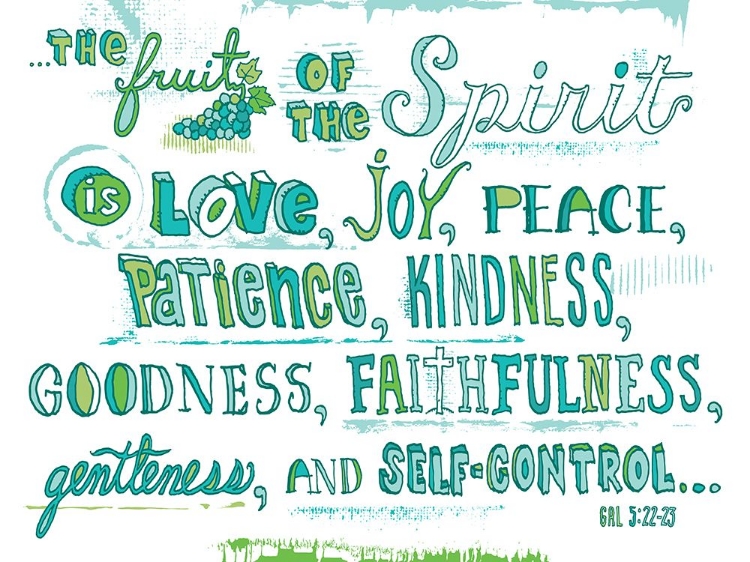 ...THE fruit OF THE Spirit
is LOVE, JOY, PEACE,
PATIENCE, KINDNESS,
GOODNESS, FAITHFULNESS,
gentleness, AND SELF-CONTROL...
GAL 5:22-23